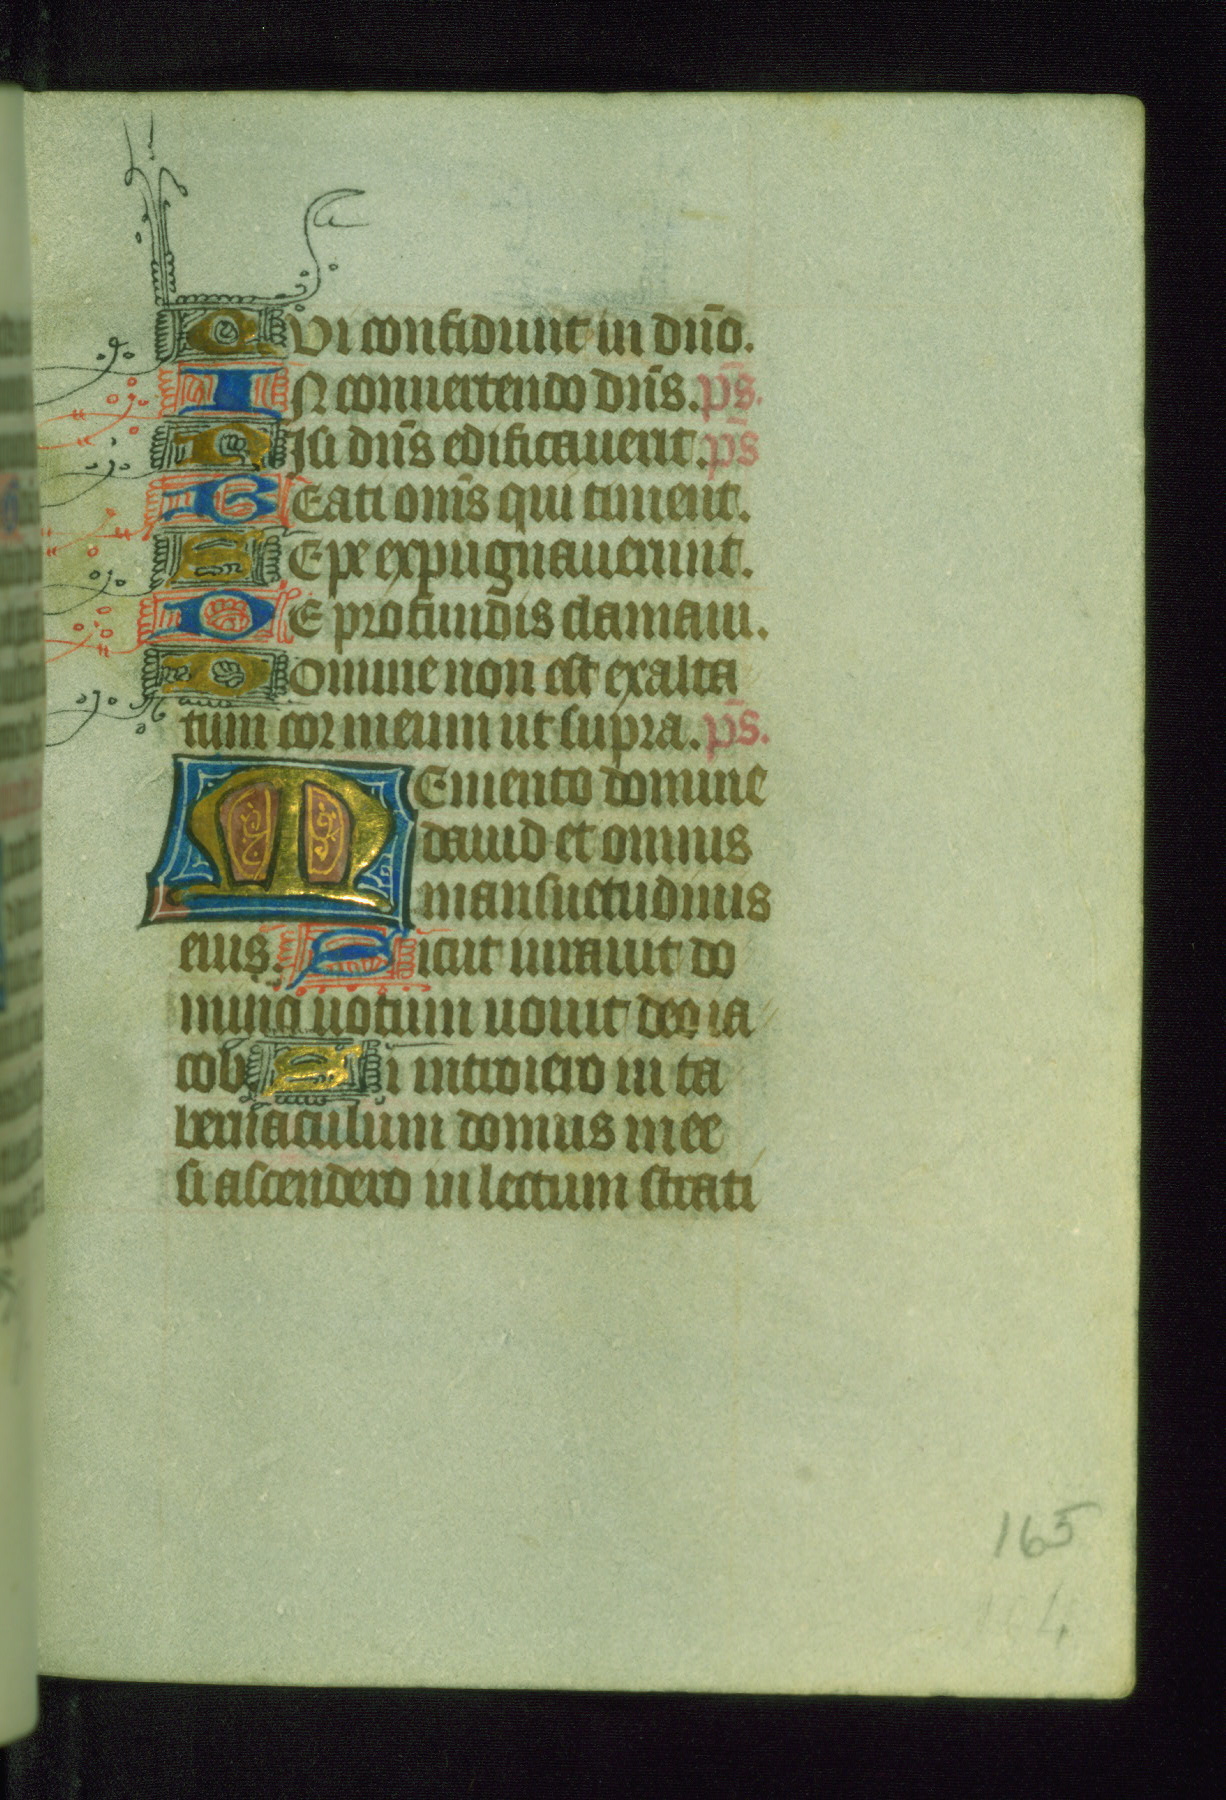 QUi confidunt in dnō.
IN conuertendo dn̄s. p̄s.
Nisi dn̄s edificauerit. p̄s
BEati omn̄s qui timent.
SEpe expugnauerunt.
DE profundis clamaui.
Domine non est exalta
tum cor meum ut supra. p̄s.
MEmento domine
dauid et omnis
mansuetudinis
eius. Sicut iurauit do
mino uotum uouit deo ia
cob Si introiero in ta
bernaculum domus mee
si ascendero in lectum strati
165
164